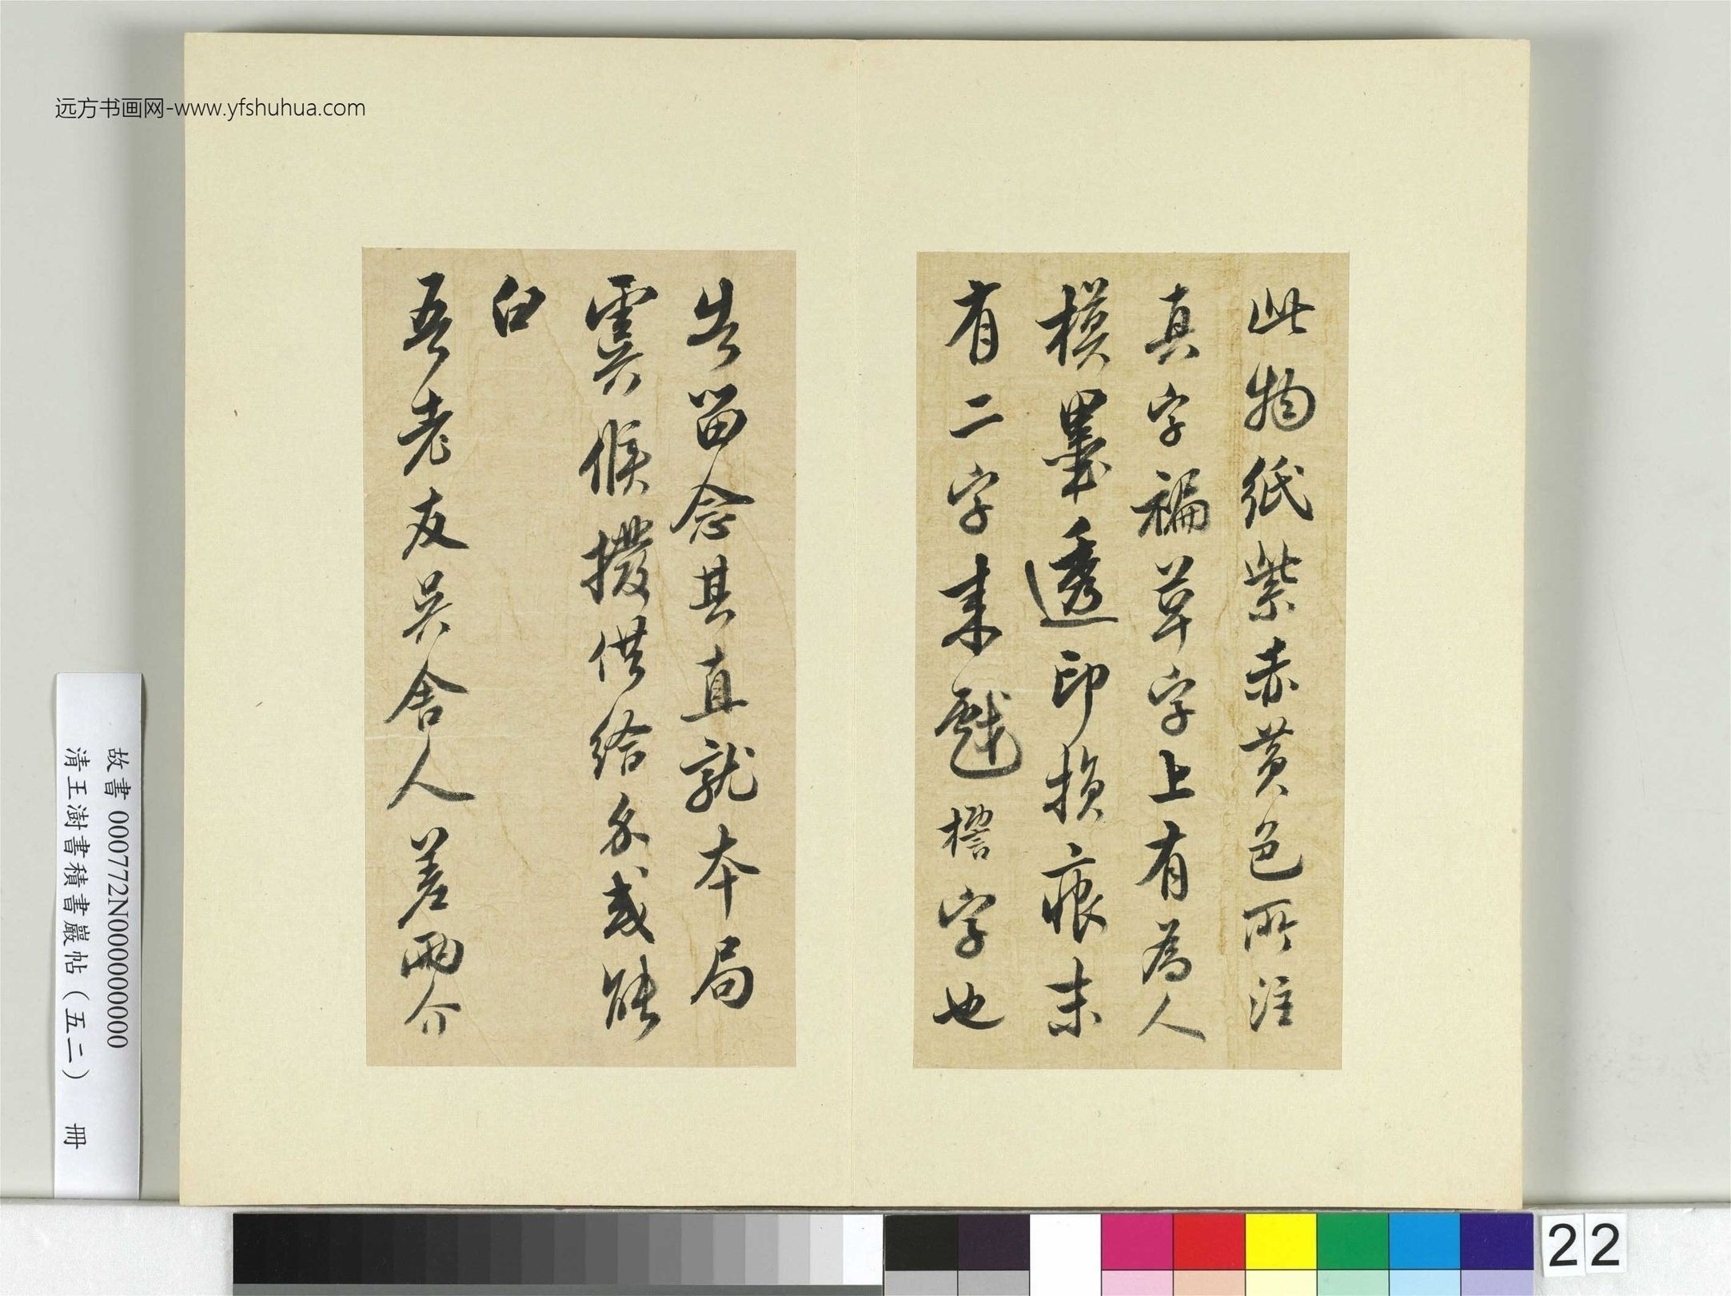 远方书画网-www.yfshuhua.com
此物紙紫赤黃色所注
真字褊草字上有為人
模墨透印損痕末
有二字來戲字也
告留念其直就本局
虞候撥供給內或能
白
吾老友吳舍人差兩介
故書 000772N000000000
清王澍書積書巖帖（五二） 冊
22